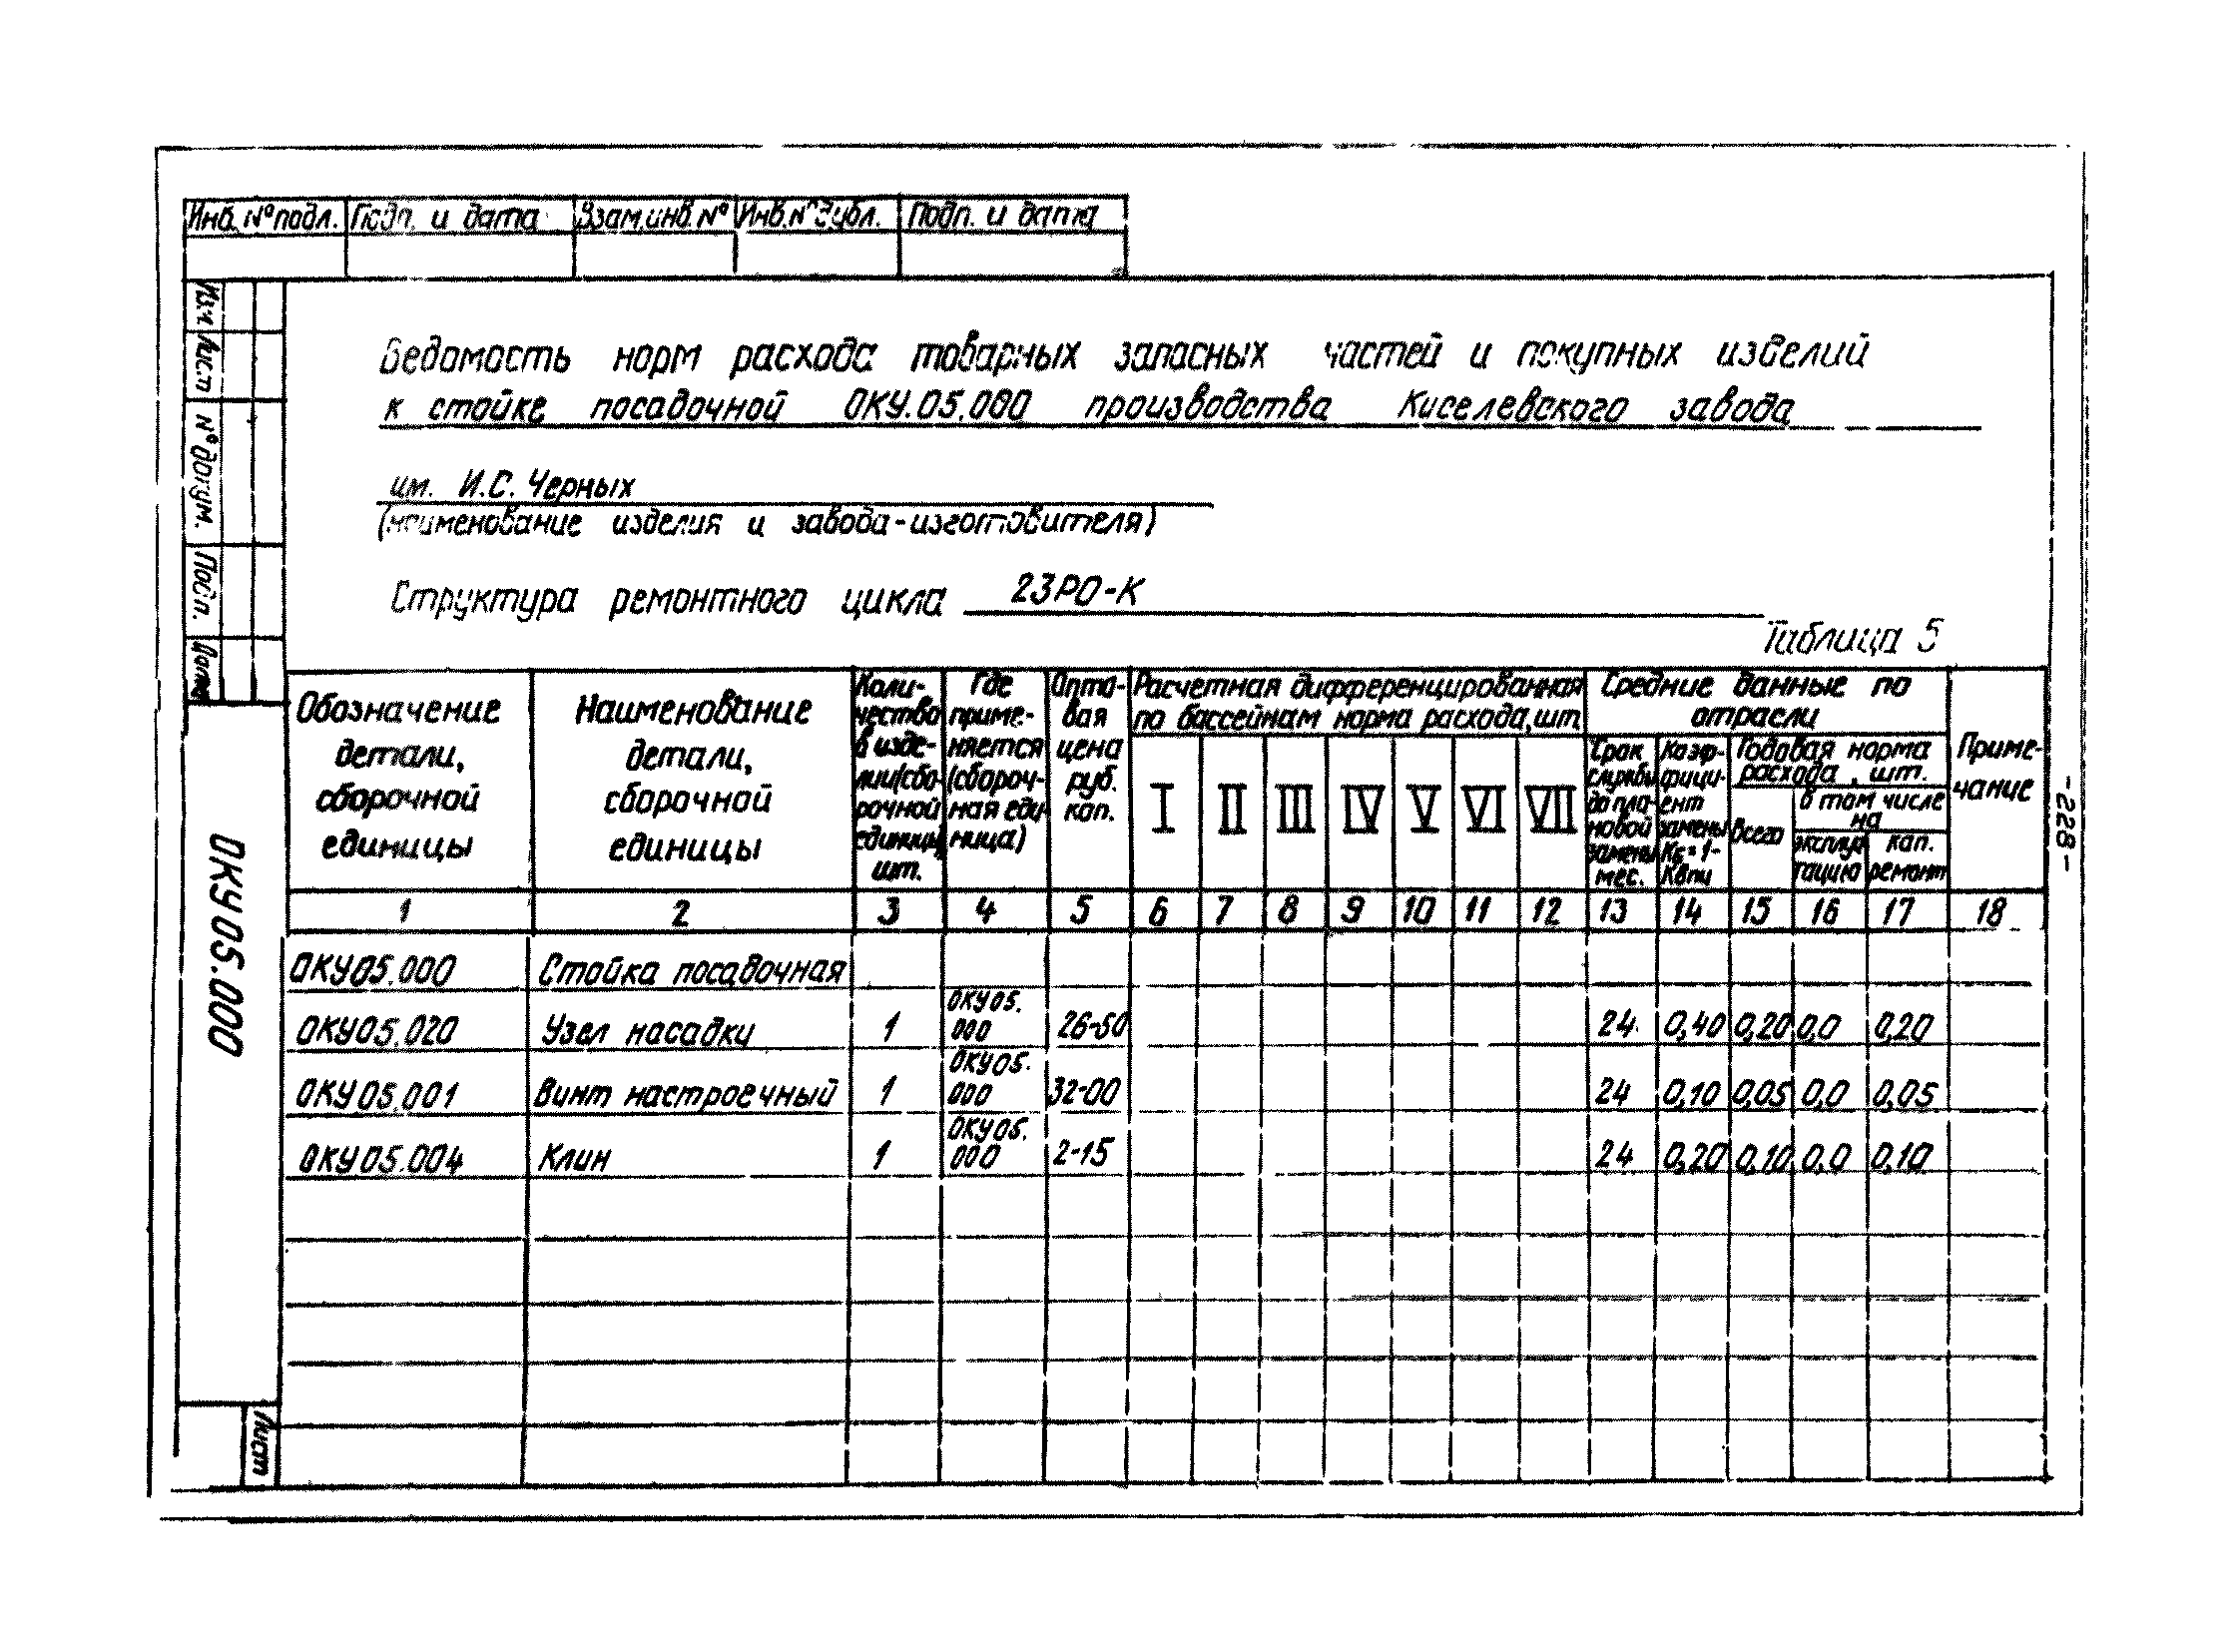 Инв. № подл. Подп. и дата Взам.инв.№ Инв.№ дубл. Подп. и дата
Изм
Лист
№ докум.
Подп.
Дата
ОКУ05.000
Лист
Ведомость норм расхода товарных запасных частей и покупных изделий
к стойке посадочной ОКУ.05.000 производства Киселевского завода
им. И.С. Черных
(наименование изделия и завода-изготовителя)
Структура ремонтного цикла 23РО-К
Таблица 5
Обозначение
детали,
сборочной
единицы
Наименование
детали,
сборочной
единицы
Коли-
чество
в изде-
лии(сбо-
рочной
единицы)
шт.
Где
приме-
няется
(сбороч-
ная еди
ница)
Опто-
вая
цена
руб.
коп.
Расчетная дифференцированная
по бассейнам норма расхода, шт.
I II III IV V VI VII
Средние данные по
отрасли
Срок
службы
до пла-
новой
замены
мес.
Коэф-
фици-
ент
замены
Kв=1-
Kвпи
Годовая норма
расхода , шт.
Всего
в том числе
на
эксплуа
тацию
кап.
ремонт
Приме-
чание
1 2 3 4 5 6 7 8 9 10 11 12 13 14 15 16 17 18
ОКУ05.000 Стойка посадочная
ОКУ05.020 Узел насадки 1 ОКУ05.000 26-50 24 0,40 0,20 0,0 0,20
ОКУ05.001 Винт настроечный 1 ОКУ05.000 32-00 24 0,10 0,05 0,0 0,05
ОКУ05.004 Клин 1 ОКУ05.000 2-15 24 0,20 0,10 0,0 0,10
-228-